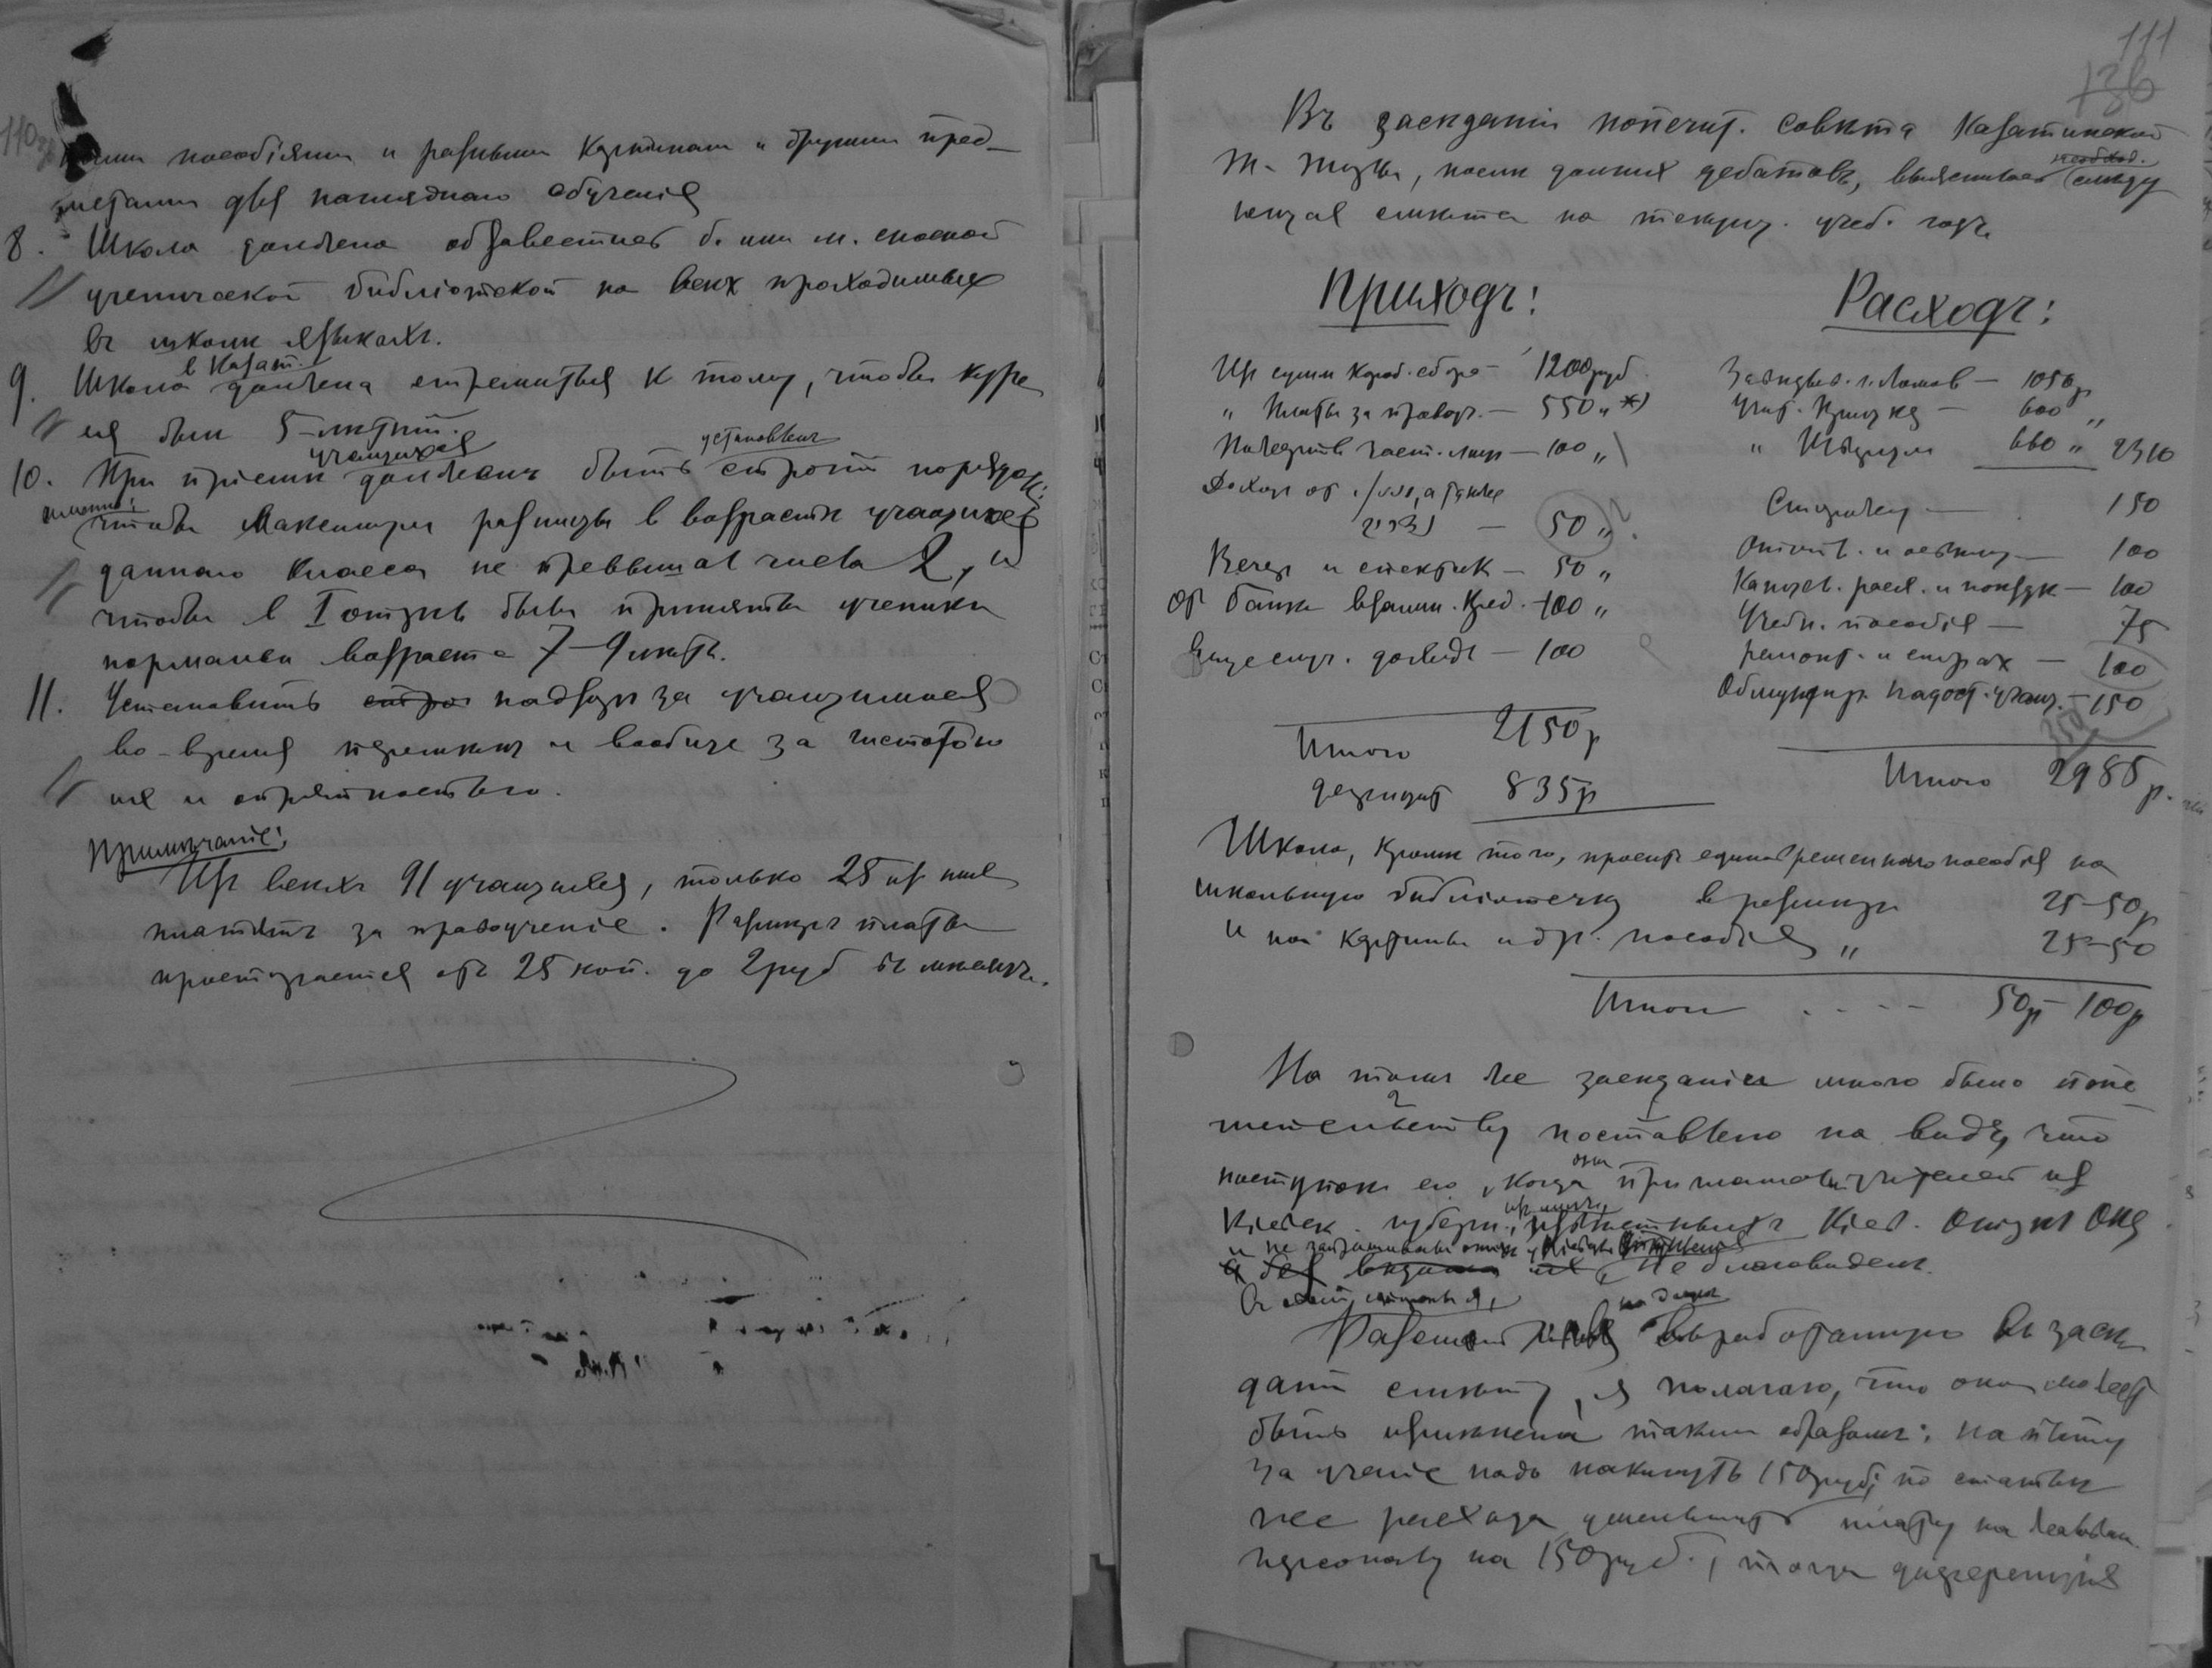 110
ными пособіями и разными картинами и другими пред-
метами для нагляднаго обученія
8. Школа должна обзавестись б. или м. сносной
ученической библіотекой на всѣх проходимых
въ школѣ языкахъ.
в Казат.
9. Школа должна стремиться к тому, чтобы курс
ея был 5-лѣтній.
учащихся установленъ
10. При пріемѣ должен быть строгій порядок:
именно:
чтобы максимум разницы в возрастѣ учащихся
даннаго класса не превышал числа 2, и
чтобы в I отдѣл были приняты ученики
нормальн возраста 7-9 лѣтъ.
11. Установить надзор за учащимися
во-время перемѣн и вообще за чистотою
их и опрятностью.
Примѣчаніе:
Из всѣхъ 91 учащихся, только 25 из них
платятъ за правоученіе. Размѣръ платы
простирается отъ 25 коп. до 2 руб въ мѣсяцъ.
111
136
Въ засѣданіи попечит. совѣта Казатинской
Т.-Торы, послѣ долгих дебатовъ, выяснилась слѣду
ющая смѣта на текущ. учеб. годъ.
Приходъ:
Из сумм короб. сбора - 1200 руб
" Платы за правоуч. - 550 " *)
Пожертв част. лиц - 100 "
Доход от
נדרים - 50 " ?
Вечер и спектак - 50 "
От банка взаим. кред. - 100 "
Еще случ. доход - 100
Итого 2150 р
дефицит 835 р
Расходъ:
Завѣдыв. - 1050 р
Учит. - 600 "
" 660 " 2310
Сторожу - 150
Отопл. и освѣщ - 100
Канцел. расх. и - 100
Учебн. пособія - 75
ремонт. и страх - 100
Обмундир. недост. учащ. - 150
350
Итого 2985 р.
Школа, кромѣ того, просит единовременнаго пособія на
школьную библіотечку в размѣрѣ 25-50 р
и на картины и др. пособія " 25-50
Итого . . - - 50 р - 100 р
На том же засѣданіи мною было попе
чительству поставлено на вид, что
поступок его, когда они приглашали учителей из
Кіевск. губерн., Кіев. Отдѣл ОПЕ
и не запрашивали
не благовиден.
на
выработанную въ засѣ
даніи смѣту, я полагаю, что она может
быть измѣнена таким образом: на плату
за ученіе надо накинуть 150 руб; по статьѣ
же расхода уменьшить плату на жалован.
персоналу на 150 руб., тогда